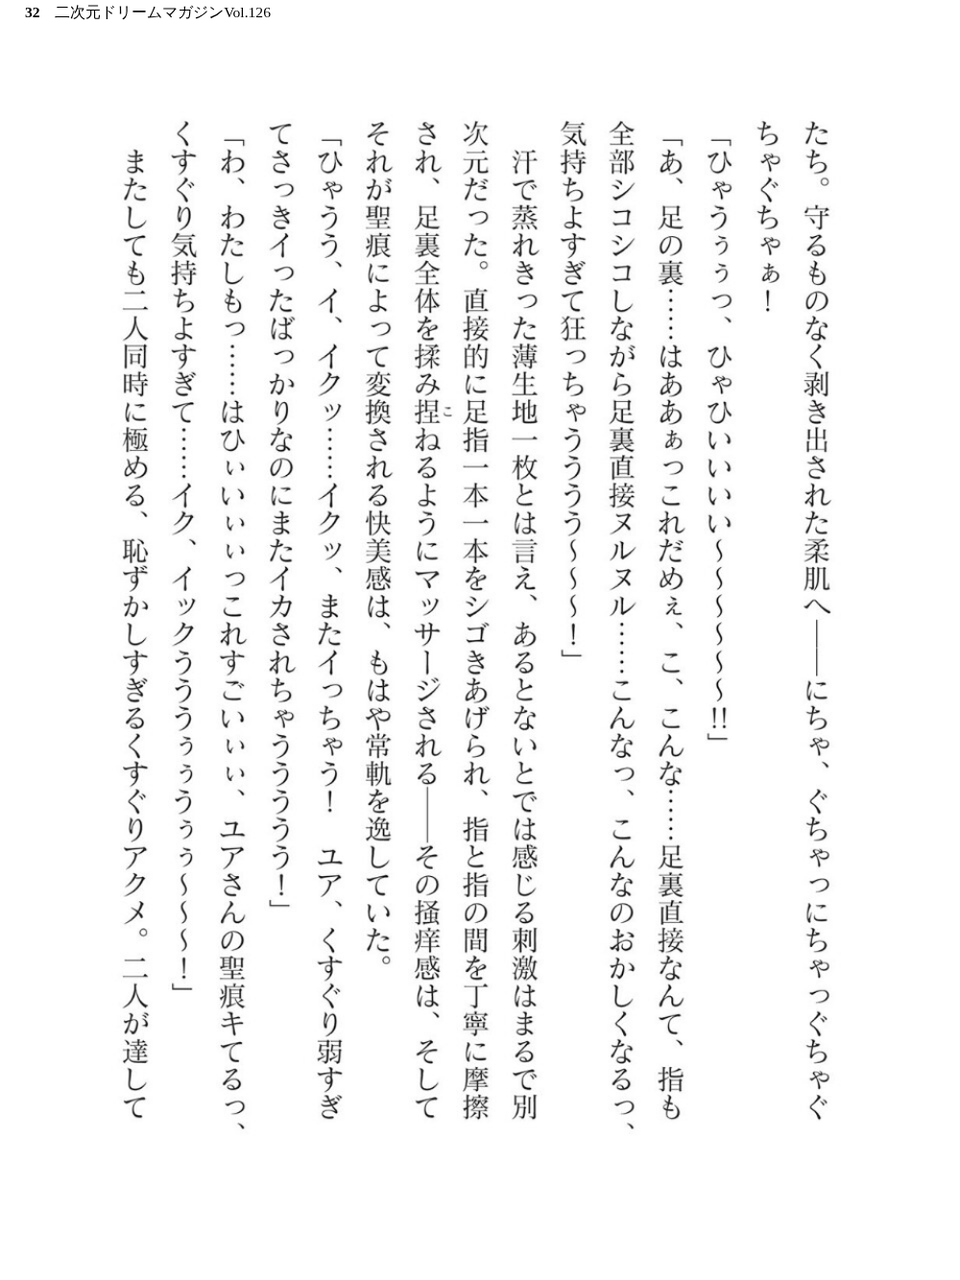 32 二次元ドリームマガジンVol.126
たち。守るものなく剥き出された柔肌へ――にちゃ、ぐちゃっにちゃっぐちゃぐ
ちゃぐちゃぁ！
「ひゃうぅぅっ、ひゃひいいいい～～～～～～!!」
「あ、足の裏……はあぁっこれだめぇ、こ、こんな……足裏直接なんて、指も
全部シコシコしながら足裏直接ヌルヌル……こんなっ、こんなのおかしくなるっ、
気持ちよすぎて狂っちゃうううう～～～！」
　汗で蒸れきった薄生地一枚とは言え、あるとないとでは感じる刺激はまるで別
次元だった。直接的に足指一本一本をシゴきあげられ、指と指の間を丁寧に摩擦
され、足裏全体を揉み捏こねるようにマッサージされる――その掻痒感は、そして
それが聖痕によって変換される快美感は、もはや常軌を逸していた。
「ひゃうう、イ、イクッ……イクッ、またイっちゃう！　ユア、くすぐり弱すぎ
てさっきイったばっかりなのにまたイカされちゃううううう！」
「わ、わたしもっ……はひぃいぃぃっこれすごいぃぃ、ユアさんの聖痕キてるっ、
くすぐり気持ちよすぎて……イク、イックうううぅぅうぅぅ～～～！」
　またしても二人同時に極める、恥ずかしすぎるくすぐりアクメ。二人が達して